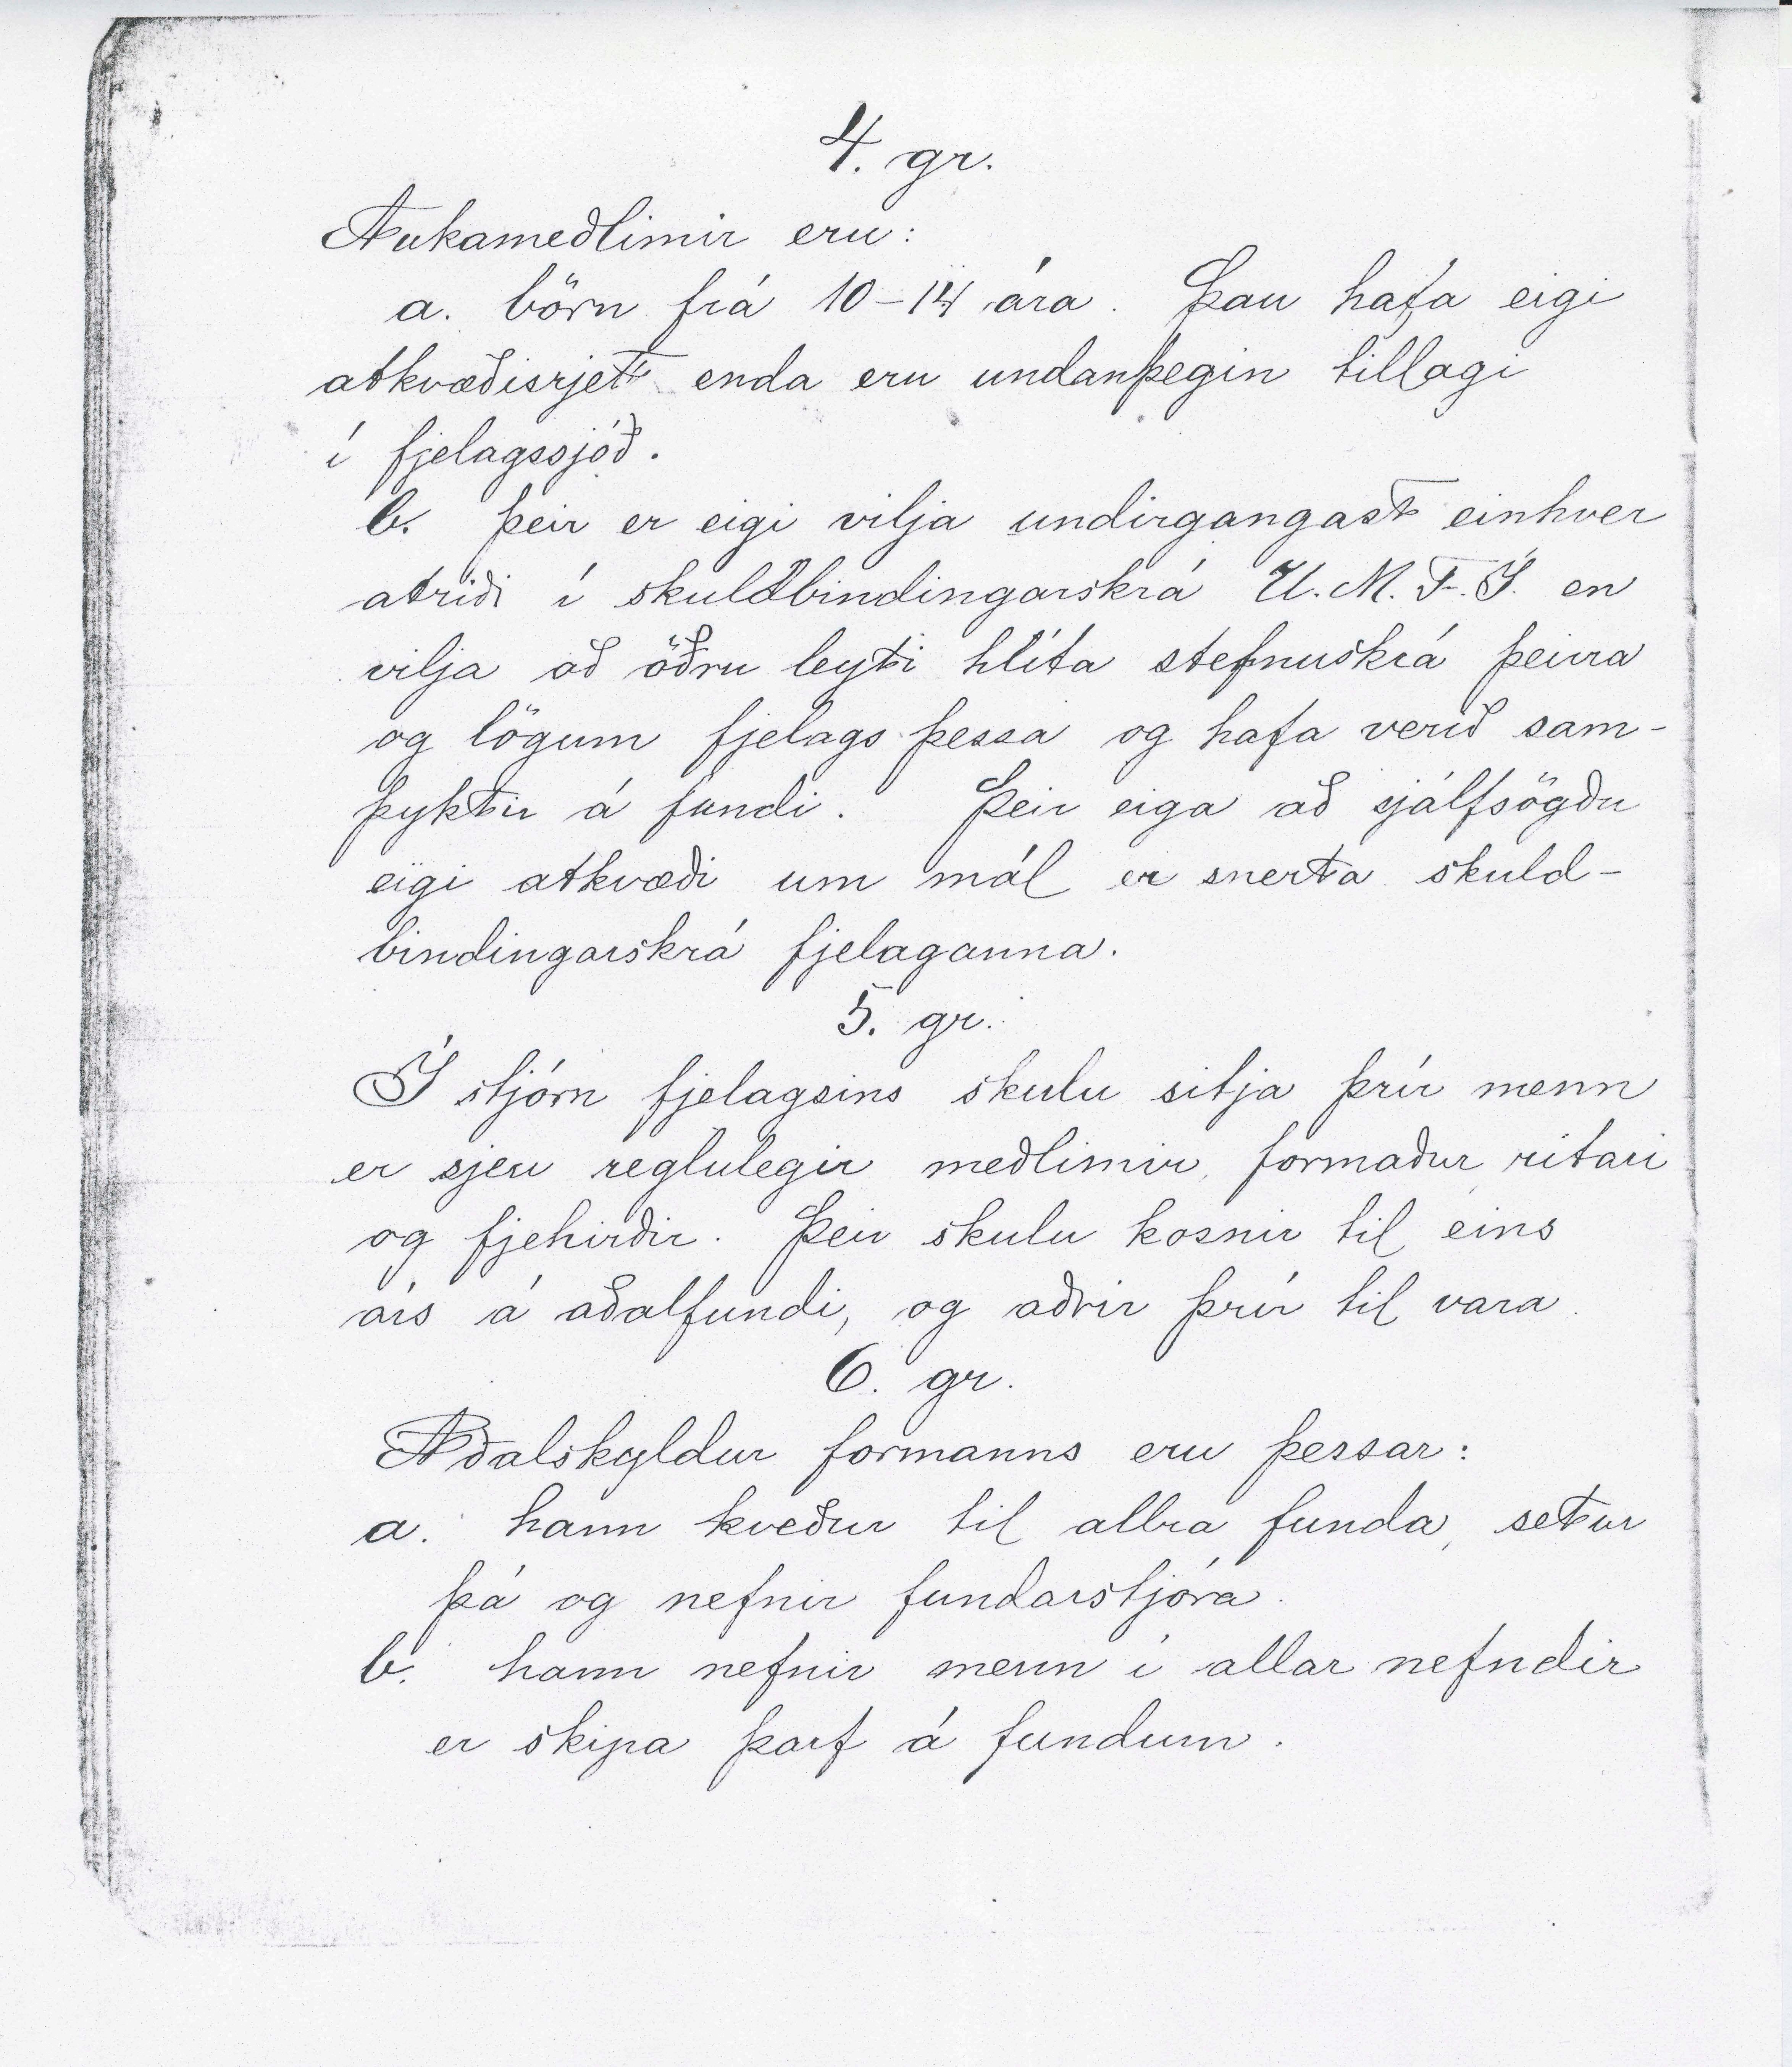 4. gr.
Aukameðlimir eru:
a. börn frá 10-14 ára. Þau hafa eigi
atkvæðisrjett enda eru undanþegin tillagi
í fjelagssjóð.
b. þeir er eigi vilja undirgangast einhver
atriði í skuldbindingarskrá U.M.F.Í. en
vilja að öðru leyti hlíta stefnuskrá þeirra
og lögum fjelags þessa og hafa verið sam-
þyktir á fundi. Þeir eiga að sjálfsögðu
eigi atkvæði um mál er snerta skuld-
bindingarskrá fjelaganna.
5. gr.
Í stjórn fjelagsins skulu sitja þrír menn
er sjeu reglulegir meðlimir, formaður ritari
og fjehirðir. Þeir skulu kosnir til eins
árs á aðalfundi, og aðrir þrír til vara.
6. gr.
Aðalskyldur formanns eru þessar:
a. hann kveður til allra funda, setur
þá og nefnir fundarstjóra.
b. hann nefnir menn í allar nefndir
er skipa þarf á fundum.